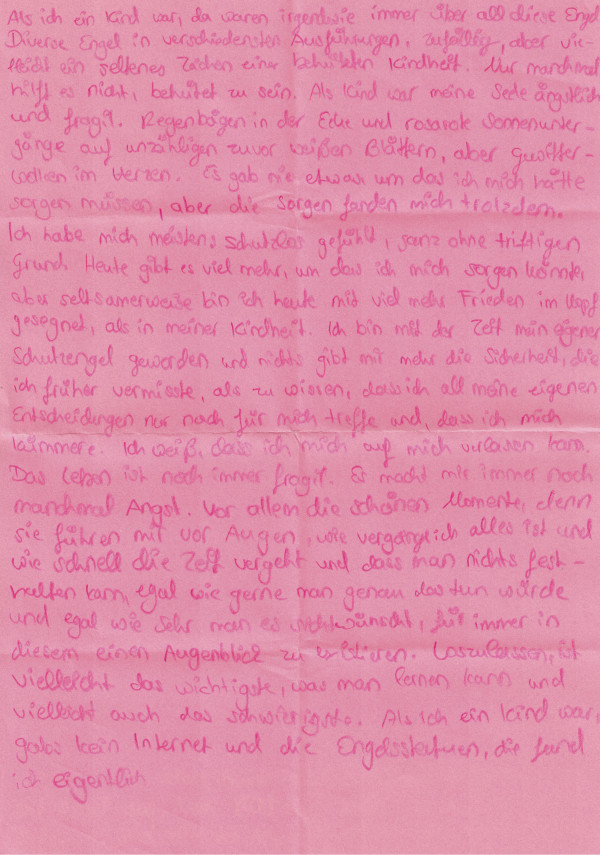 Als ich ein Kind war, da waren irgendwie immer über all diese Engel
Diverse Engel in verschiedensten Ausführungen. Zufällig, aber vie-
lleicht ein seltenes Zeichen einer behüteten Kindheit. Nur manchmal
hilft es nicht, behütet zu sein. Als Kind war meine Seele ängstlich
und fragil. Regenbögen in der Ecke und rosarote Sonnenunter-
gänge auf unzähligen zuvor weißen Blättern, aber Gewitter-
wolken im Herzen. Es gab nie etwas um das ich mich hätte
sorgen müssen, aber die Sorgen fanden mich trotzdem.
Ich habe mich meistens schutzlos gefühlt, ganz ohne triftigen
Grund. Heute gibt es viel mehr, um das ich mich sorgen könnte,
aber seltsamerweise bin ich heute mit viel mehr Frieden im Kopf
gesegnet, als in meiner Kindheit. Ich bin mit der Zeit mein eigener
Schutzengel geworden und nichts gibt mir mehr die Sicherheit, die
ich früher vermisste, als zu wissen, dass ich all meine eigenen
Entscheidungen nur noch für mich treffe und, dass ich mich
kümmere. Ich weiß, dass ich mich auf mich verlassen kann.
Das Leben ist noch immer fragil. Es macht mir immer noch
manchmal Angst. Vor allem die schönen Momente, denn
sie führen mir vor Augen, wie vergänglich alles ist und
wie schnell die Zeit vergeht und dass man nichts fest-
halten kann, egal wie gerne man genau das tun würde
und egal wie sehr man es sich wünscht, für immer in
diesem einen Augenblick zu existieren. Loszulassen, ist
vielleicht das wichtigste, was man lernen kann und
vielleicht auch das schwierigste. Als ich ein Kind war,
gabs kein Internet und die Engelsstatuen, die fand
ich eigentlich